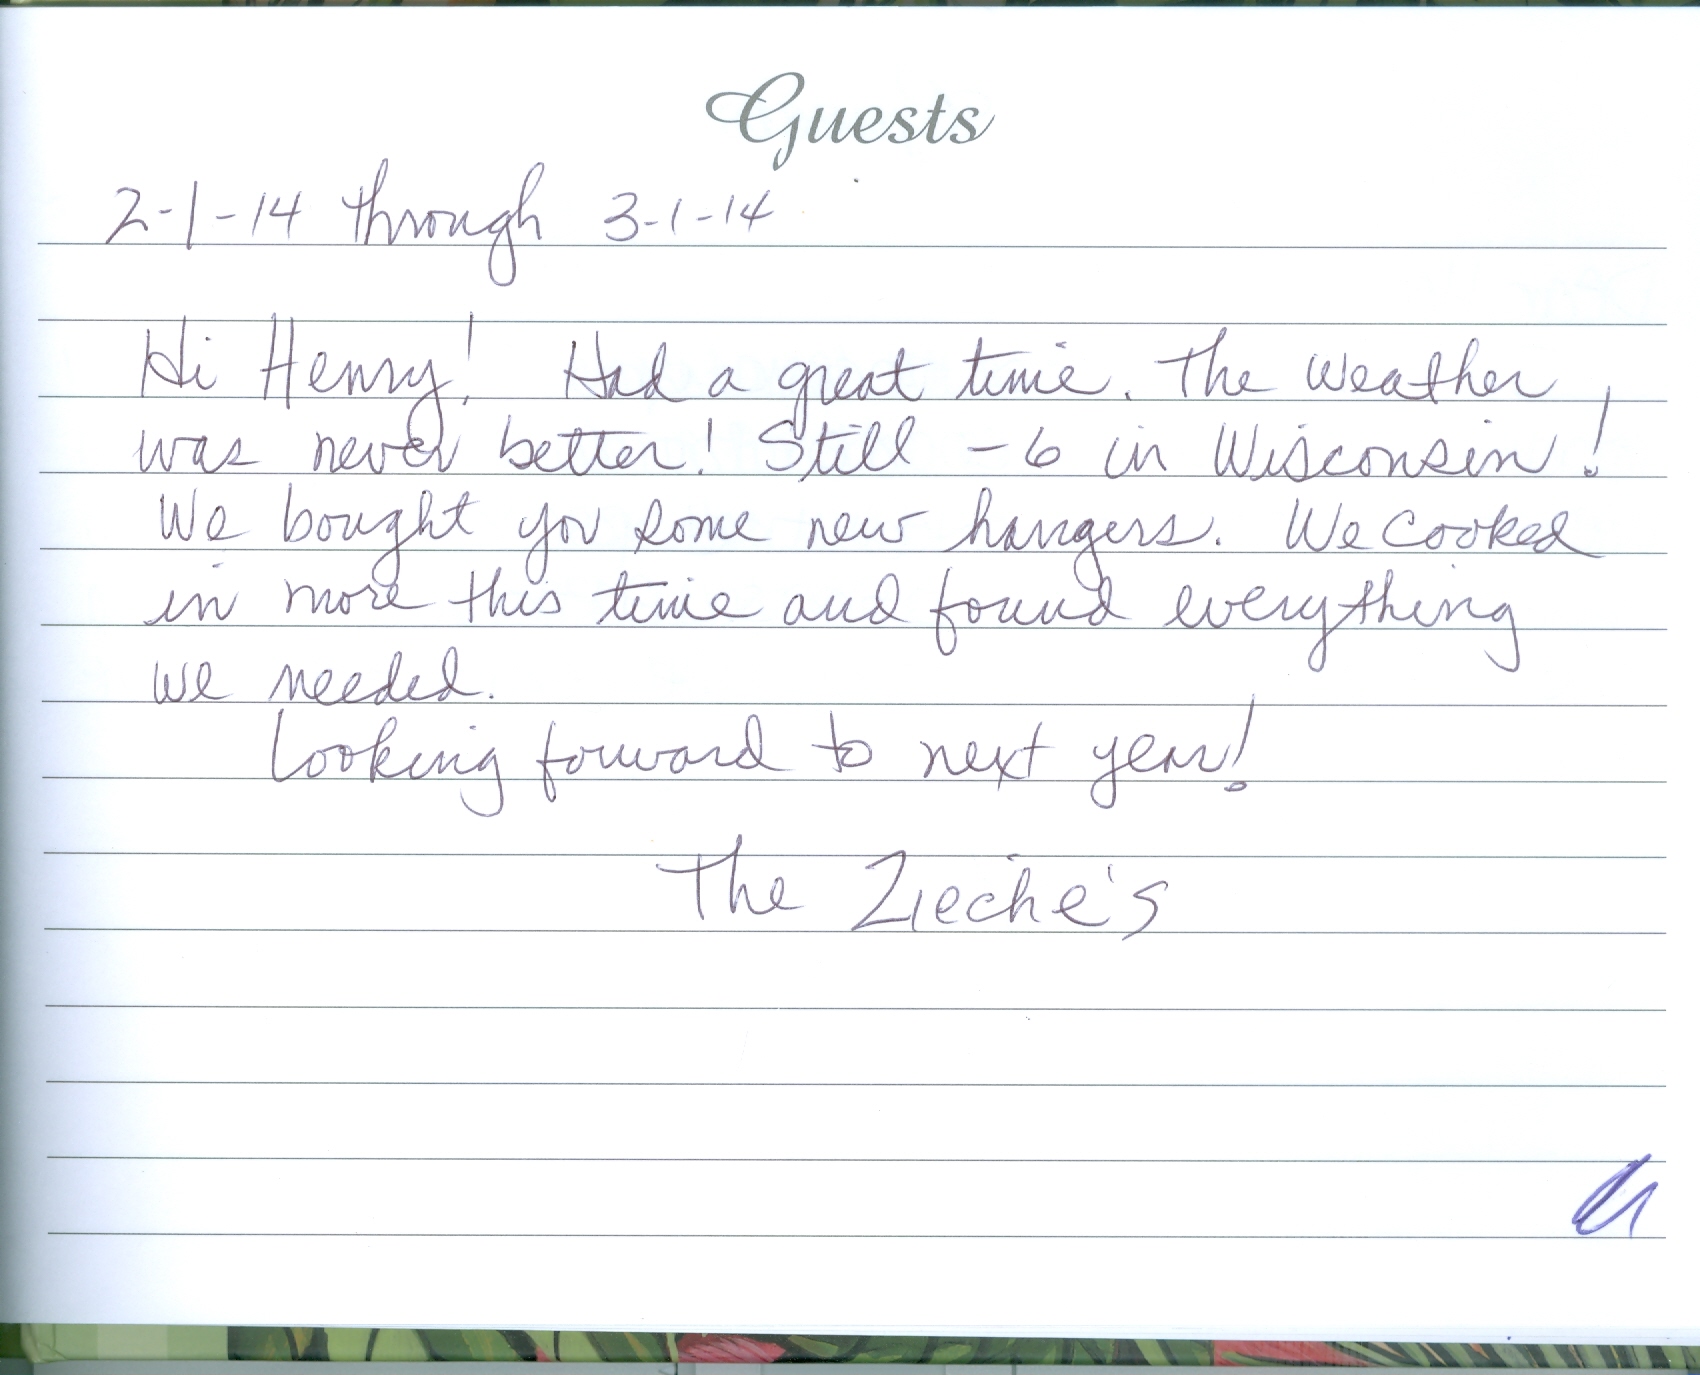 Guests
2-1-14 through 3-1-14
Hi Henry! Had a great time. The weather
was never better! Still -6 in Wisconsin!
We bought you some new hangers. We cooked
in more this time and found everything
we needed.
Looking forward to next year!
The Zieche's